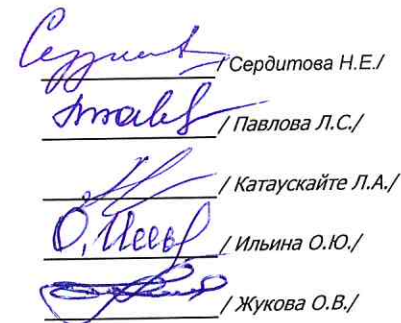 / Сердитова Н.Е./
/ Павлова Л.С./
/ Катаускайте Л.А./
/ Ильина О.Ю./
/ Жукова О.В./